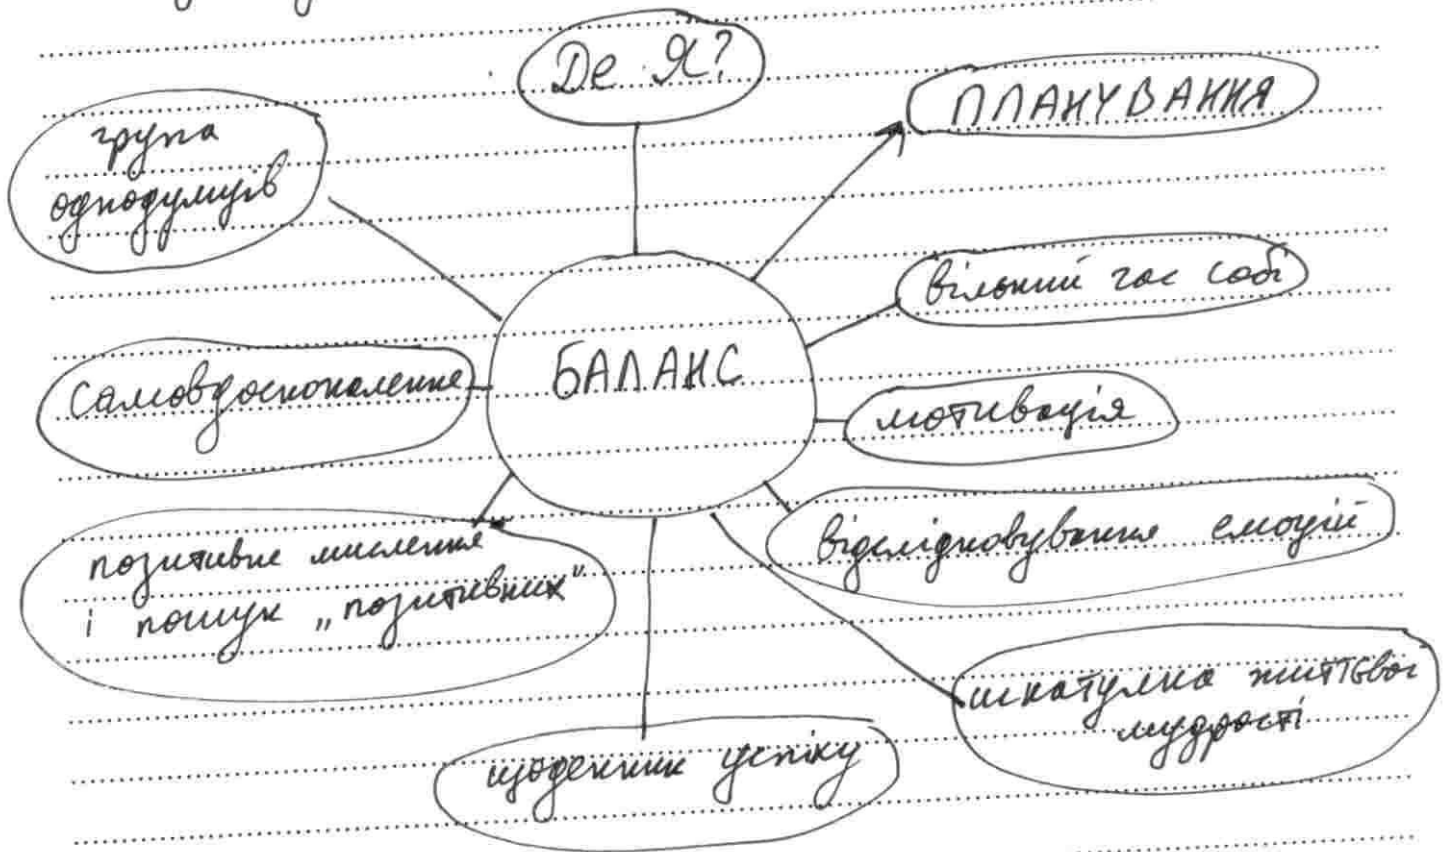 Де Я?
ПЛАНУВАННЯ
група
однодумців
вільний час собі
БАЛАНС
самовдосконалення
мотивація
відслідковування емоцій
позитивне мислення
і пошук „позитивних"
шкатулка життєвої
мудрості
щоденник успіху